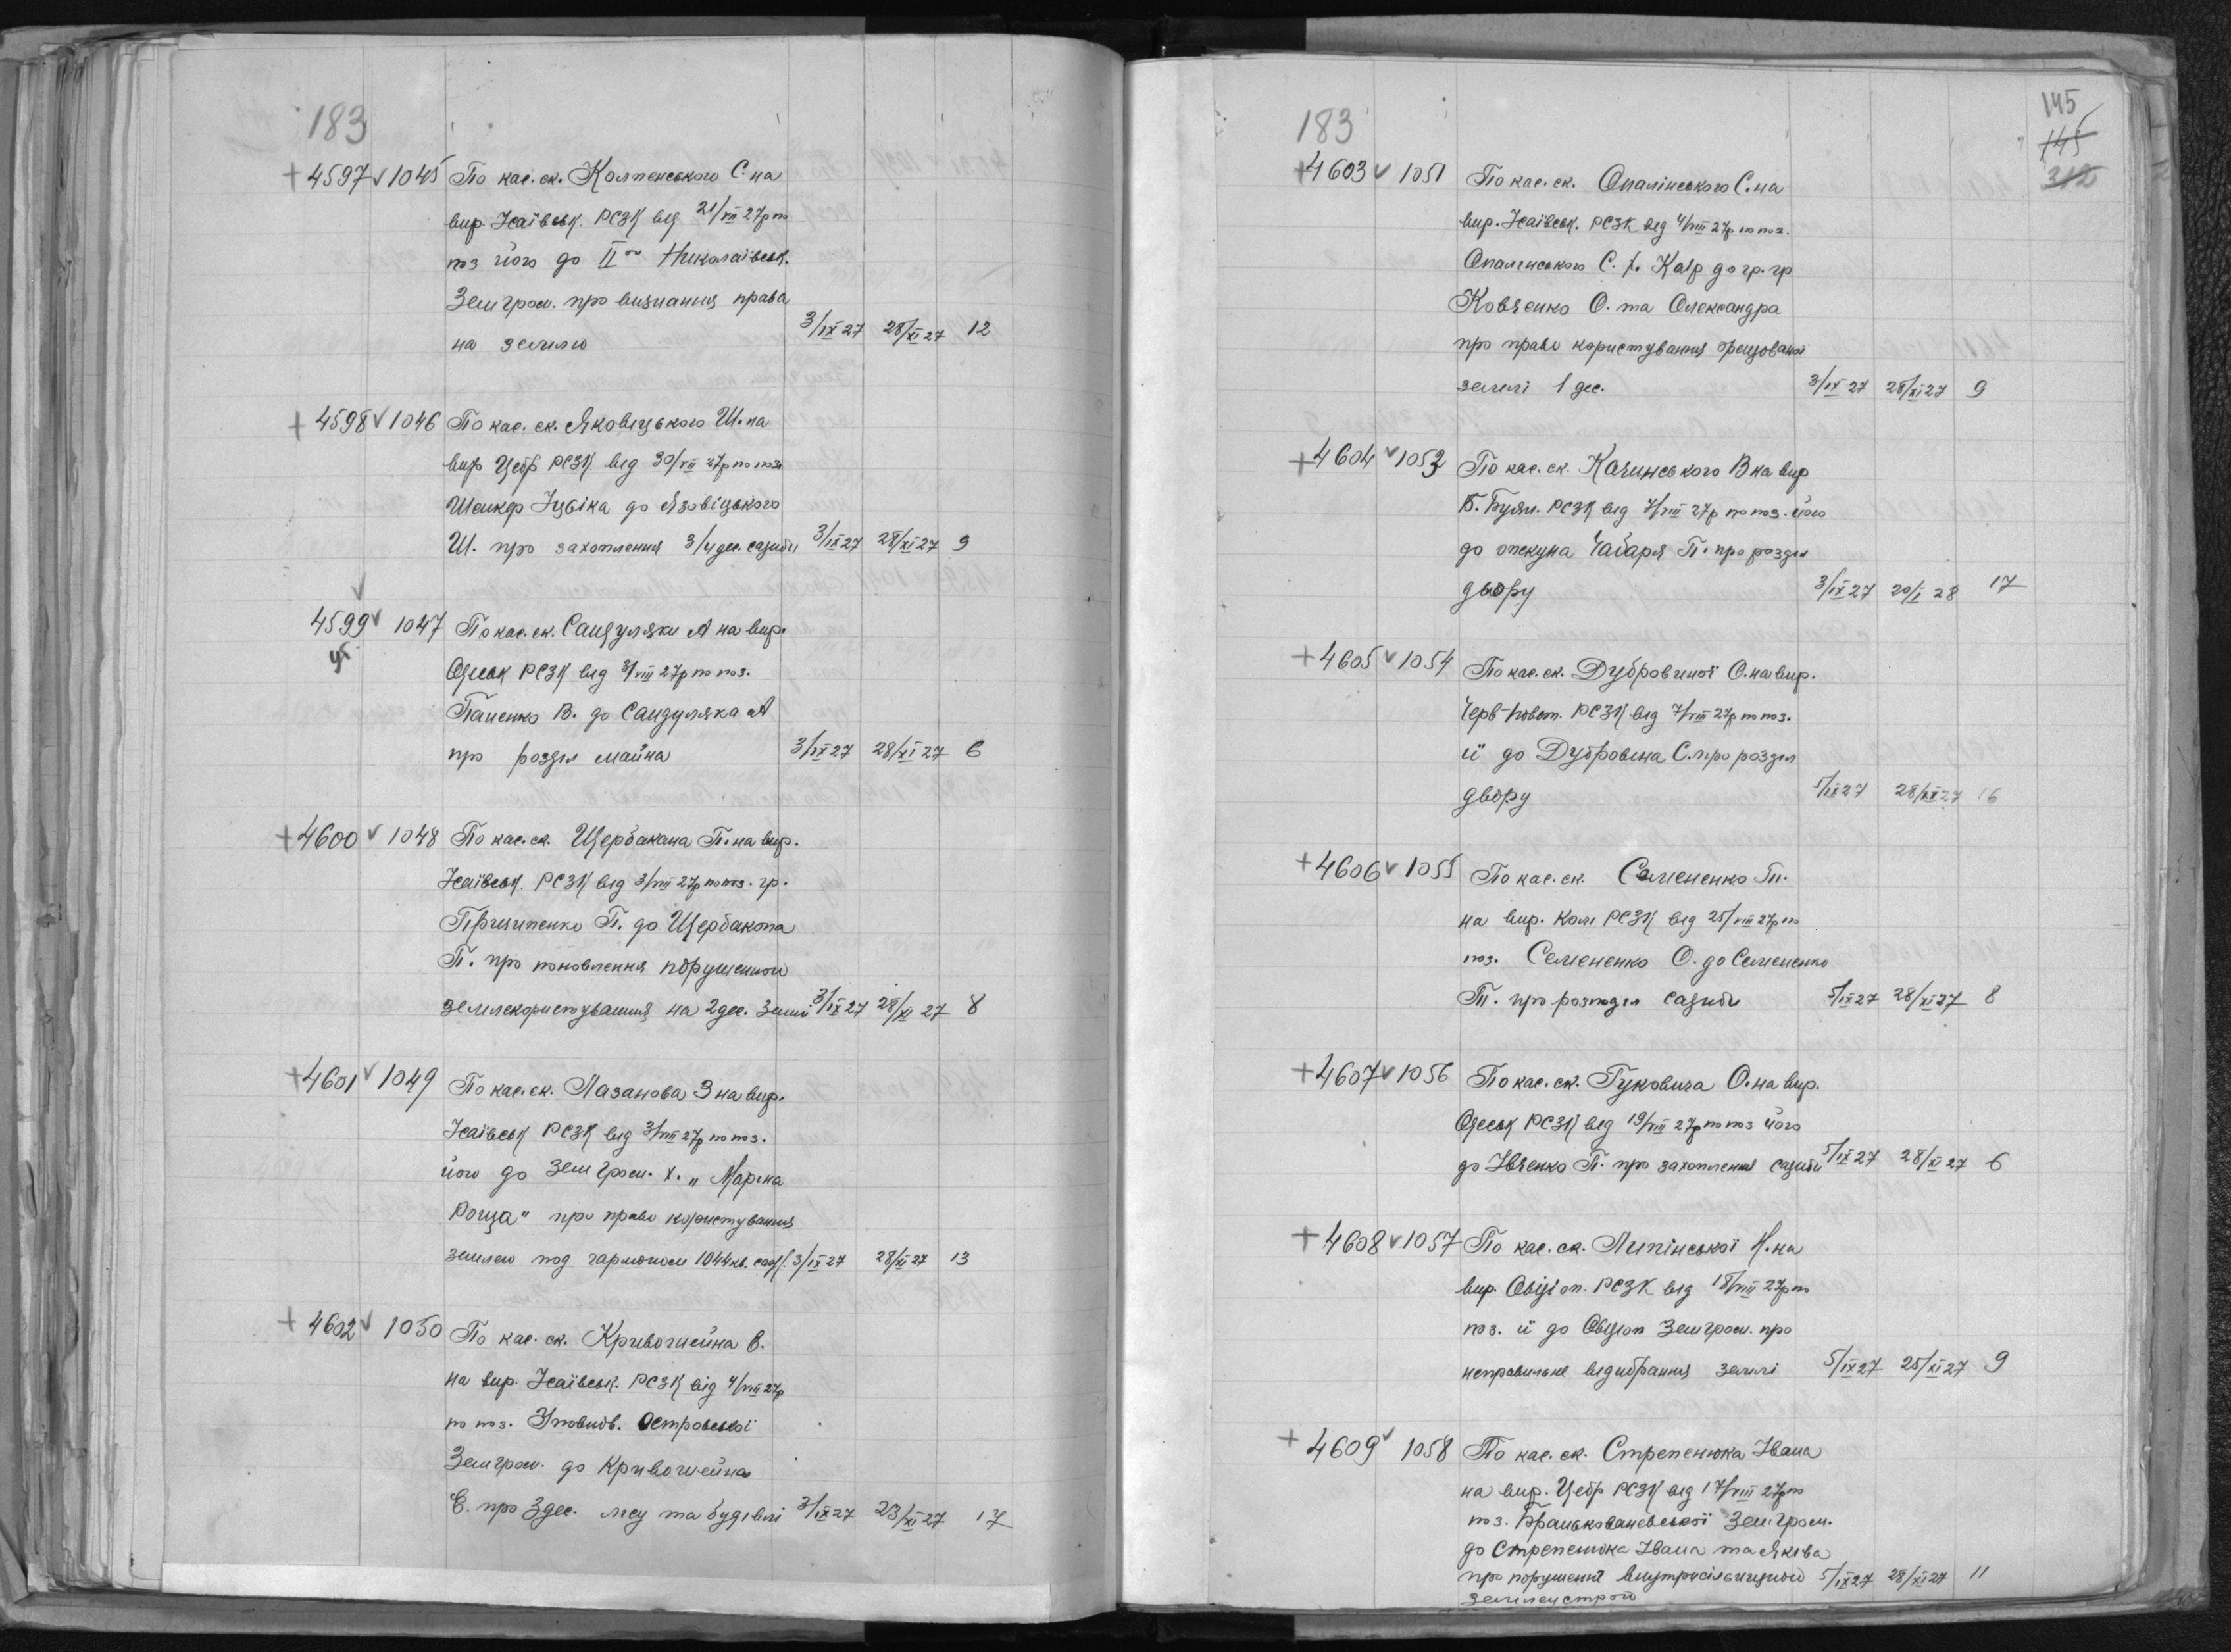 183
+ 4597 v 1045 По кас. ск. Колтенського С. на
вир. Ісаївськ. РСЗК від 21/VII 27р по
поз його до II ої Николаївськ.
Земгром. про визнання права
на землю 3/IX 27 28/XI 27 12
+ 4598 v 1046 По кас. ск. Яковіцького Ш. на
вир Цебр РСЗК від 30/VII 27р по поз
Шенкф Іцвіка до Язовіцького
Ш. про захоплення 3/4 дес. садиби 3/IX 27 28/XI 27 9
4599 v 1047 По кас. ск. Сандуляки А на вир.
Одеськ РСЗК від 3/VIII 27р по поз.
Паненко В. до Сандуляка А
про розділ майна 3/IX 27 28/XI 27 6
+ 4600 v 1048 По кас. ск. Щербакана П. на вир.
Ісаївськ. РСЗК від 3/VIII 27р по поз. гр.
Грициненко П. до Щербакопа
П. про поновлення порушенном
землекористування на 2 дес. Земли 3/IX 27 28/XI 27 8
+ 4601 v 1049 По кас. ск. Лазанова З на вир.
Ісаївськ РСЗК від 3/VIII 27р по поз.
його до Земгром. х. „Марьіна
Роща" про право користування
землею под гармоном 1044 кв. саж. 3/IX 27 28/XI 27 13
+ 4602 v 1050 По кас. ск. Кривошейна Є.
на вир. Ісаївськ. РСЗК від 4/VIII 27р
по поз. Уповнов. Островської
Земгром. до Кривошейна
Є. про 3 дес. лісу та будівлі 3/IX 27 23/XI 27 17
183
145
145
312
+ 4603 v 1051 По кас. ск. Опалінського С. на
вир. Ісаївськ. РСЗК від 4/VIII 27р по поз.
Опаленського С. х. Каїр до гр. гр
Ковченко О. та Олександра
про право користування орендованої
землі 1 дес. 3/IX 27 28/XI 27 9
+ 4604 v 1053 По кас. ск. Качинського В на вир
Б. Буял. РСЗК від 7/VIII 27р по поз. його
до опекуна Чабаря П. про розділ
двору 3/IX 27 20/I 28 17
+ 4605 v 1054 По кас. ск. Дубровиної О. на вир.
Черв-повст. РСЗК від 7/VIII 27р по поз.
її до Дубровина С. про розділ
двору 5/IX 27 28/XI 27 16
+ 4606 v 1055 По кас. ск. Семененко П.
на вир. Ком РСЗК від 25/VIII 27р по
поз. Семененко О. до Семененко
П. про розподіл садиби 5/IX 27 28/XI 27 8
+ 4607 v 1056 По кас. ск. Гуковича О. на вир.
Одеськ РСЗК від 19/VIII 27р по поз його
до Івченко П. про захоплення садиби 5/IX 27 28/XI 27 6
+ 4608 v 1057 По кас. ск. Липінської Н. на
вир. Овідіоп. РСЗК від 18/VIII 27р по
поз. її до Овідіоп Земгром. про
неправильне відибрання землі 5/IX 27 25/XI 27 9
+ 4609 v 1058 По кас. ск. Стрепенюка Івана
на вир. Цебр РСЗК від 17/VIII 27р по
поз. Браньковановської Земгром.
до Стрепенюка Івана та Яківа
про порушений внутриселищного 5/IX 27 28/XI 27 11
землеустрою